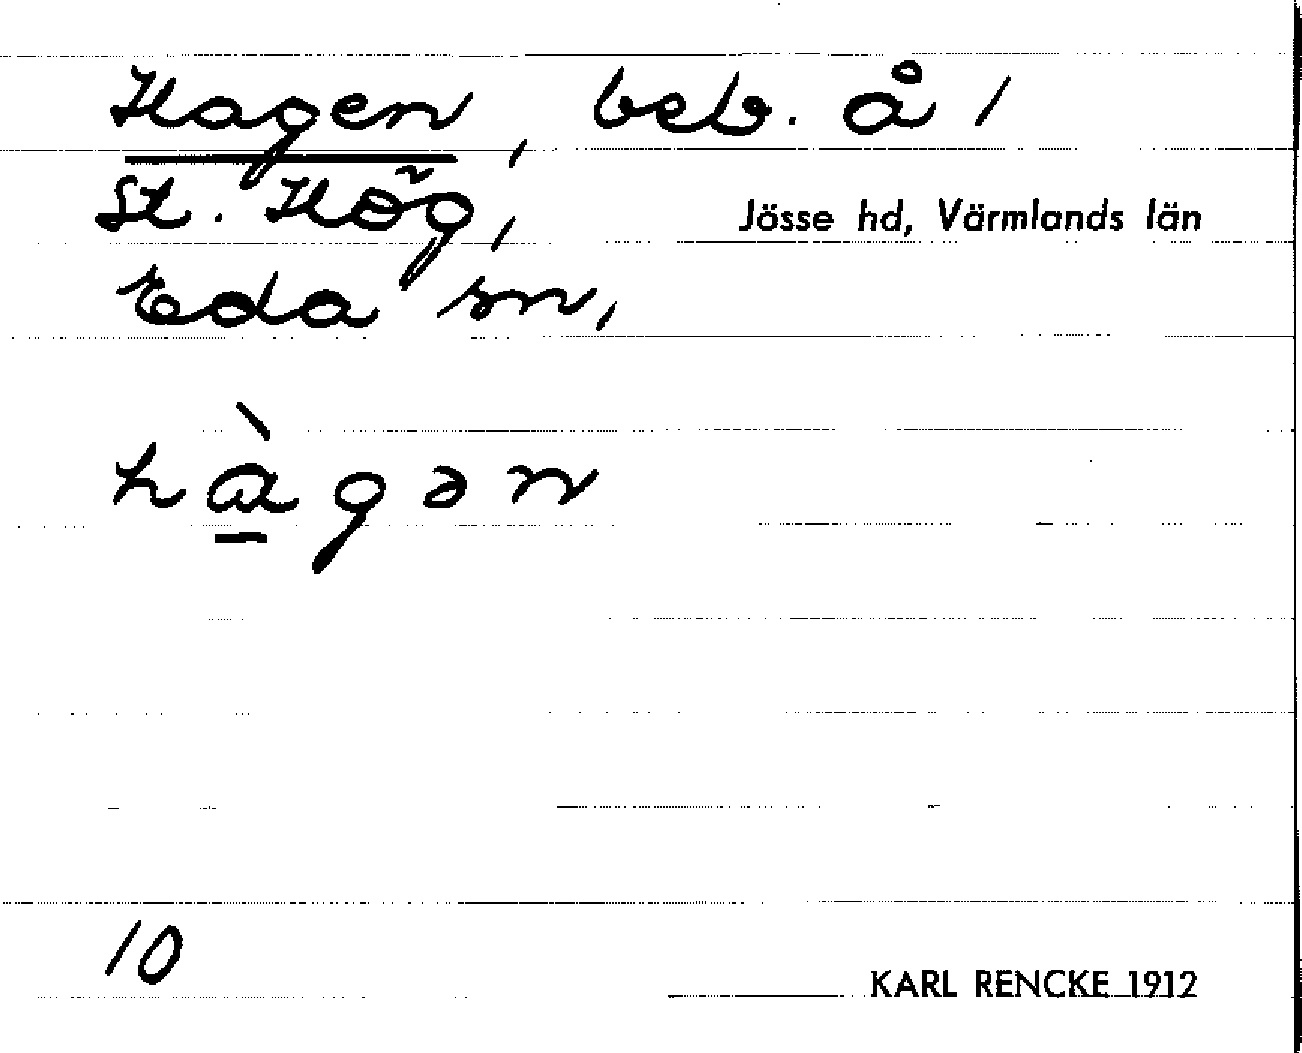 Hagen, beb. å /
St. Hög,
Jösse hd, Värmlands län
Eda sn,
hàgən
10
KARL RENCKE 1912